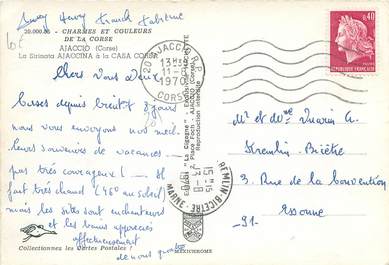 20.000.86 - CHARMES ET COULEURS
DE LA CORSE
AJACCIO (Corse)
La Sirinata AJACCINA à la CASA CORSE
Chers Vous Deux
Corses depuis bientôt 8 jours
nous vous envoyons nos meil-
leurs souvenirs de vacances
pas très courageux ! Il
fait très chaud (46° au soleil)
mais les sites sont enchanteurs
et les bains appréciés
affectueusement
de nous quatre
Collectionnez les Cartes Postales !
MEXICHROME
Place Foch - AJACCIO (Corse)
Reproduction interdite
20 AJACCIO R.P.
13H
11-8
1970
CORSE
0,40
REPUBLIQUE FRANÇAISE
KREMLIN-BICETRE
VAL DE MARNE
M. et Mme Marin A.
Kremlin-Bicêtre
3, Rue de la Convention
-91-
Essonne